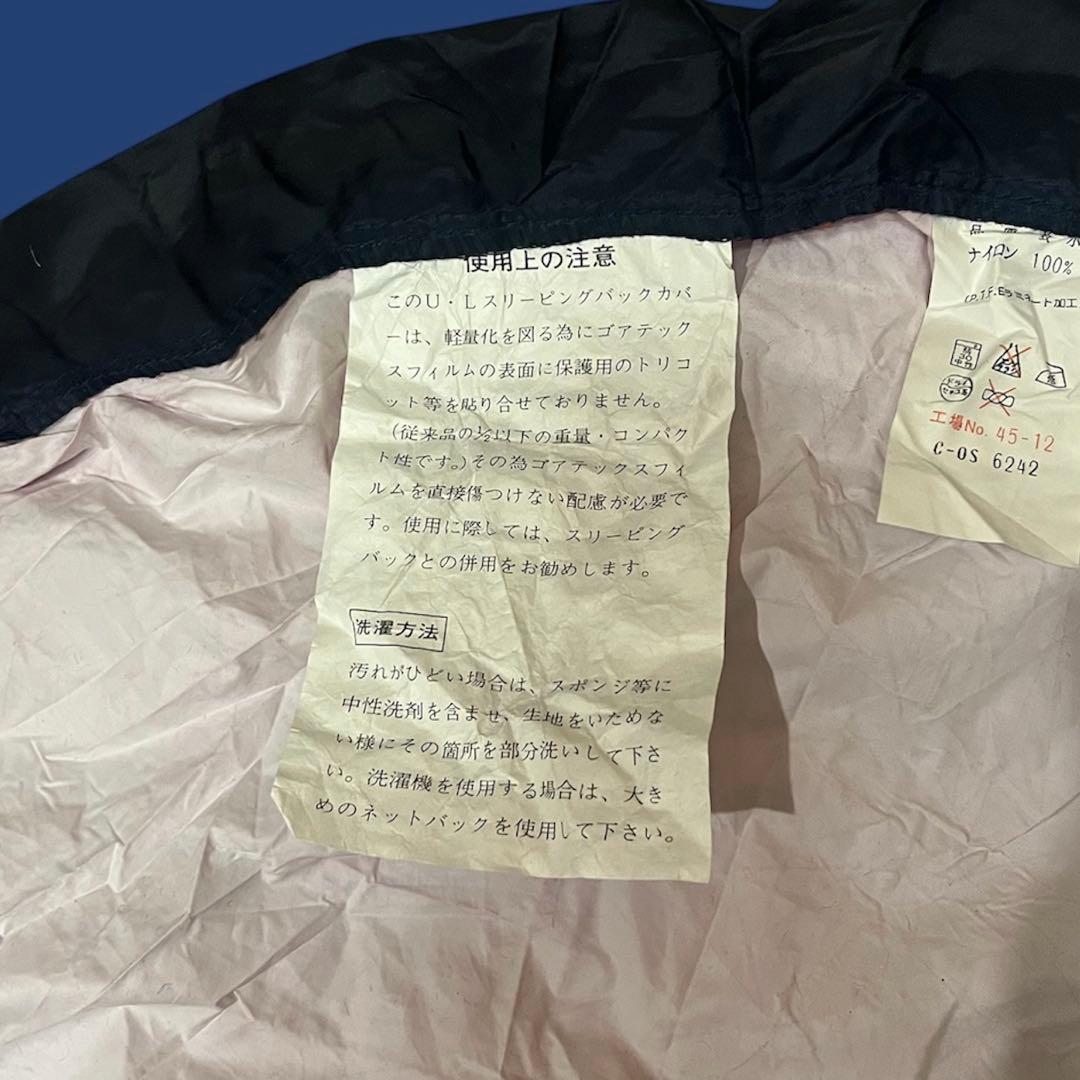 使用上の注意
このU・Lスリーピングバックカバ
ーは、軽量化を図る為にゴアテック
スフィルムの表面に保護用のトリコ
ット等を貼り合せておりません。
(従来品の½以下の重量・コンパク
ト性です。)その為ゴアテックスフィ
ルムを直接傷つけない配慮が必要で
す。使用に際しては、スリーピング
バックとの併用をお勧めします。
洗濯方法
汚れがひどい場合は、スポンジ等に
中性洗剤を含ませ、生地をいためな
い様にその箇所を部分洗いして下さ
い。洗濯機を使用する場合は、大き
めのネットバックを使用して下さい。
品質表示
ナイロン 100%
(P.T.F.Eラミネート加工
弱
30
中性
ドライ
セキユ系
工場No. 45-12
C-OS 6242